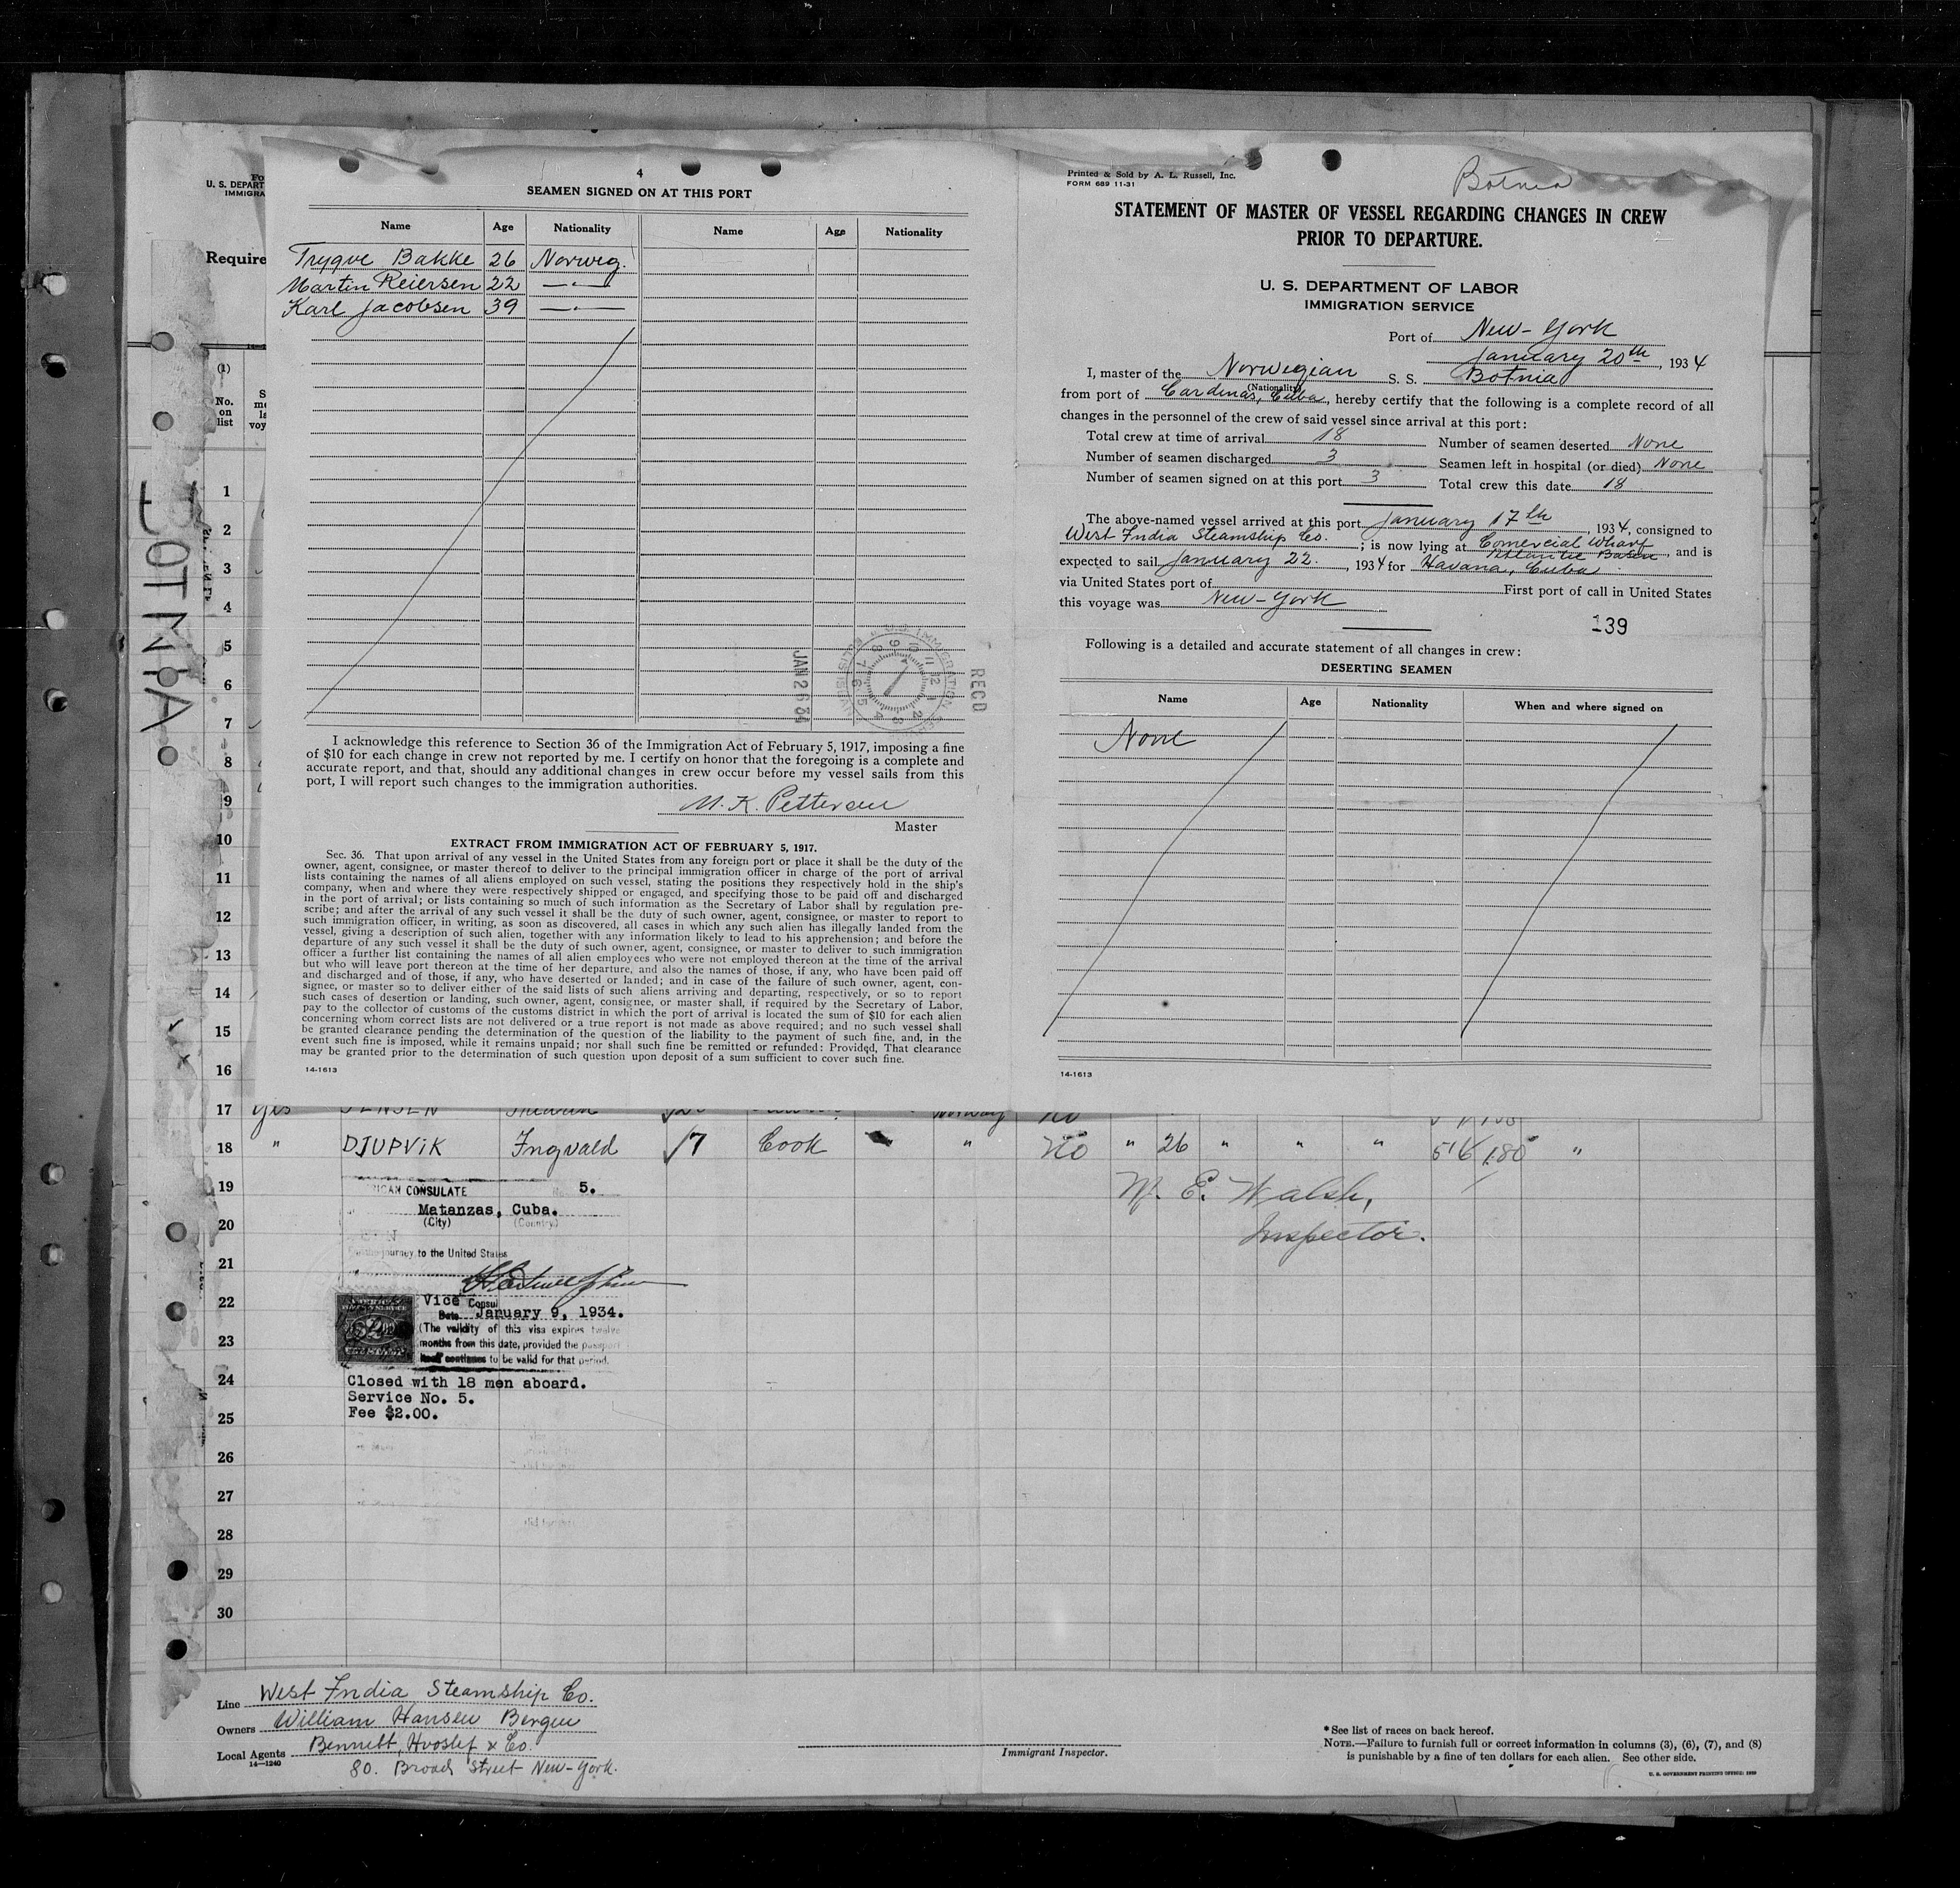 4
SEAMEN SIGNED ON AT THIS PORT
Name Age Nationality Name Age Nationality
Trygve Bakke 26 Norweg.
Martin Reiersen 22 —"—
Karl Jacobsen 39 —"—
JAN 26 34
U.S. IMMIGRATION
RECD
I acknowledge this reference to Section 36 of the Immigration Act of February 5, 1917, imposing a fine
of $10 for each change in crew not reported by me. I certify on honor that the foregoing is a complete and
accurate report, and that, should any additional changes in crew occur before my vessel sails from this
port, I will report such changes to the immigration authorities.
M. K. Pettersen
Master
EXTRACT FROM IMMIGRATION ACT OF FEBRUARY 5, 1917.
Sec. 36. That upon arrival of any vessel in the United States from any foreign port or place it shall be the duty of the
owner, agent, consignee, or master thereof to deliver to the principal immigration officer in charge of the port of arrival
lists containing the names of all aliens employed on such vessel, stating the positions they respectively hold in the ship's
company, when and where they were respectively shipped or engaged, and specifying those to be paid off and discharged
in the port of arrival; or lists containing so much of such information as the Secretary of Labor shall by regulation pre-
scribe; and after the arrival of any such vessel it shall be the duty of such owner, agent, consignee, or master to report to
such immigration officer, in writing, as soon as discovered, all cases in which any such alien has illegally landed from the
vessel, giving a description of such alien, together with any information likely to lead to his apprehension; and before the
departure of any such vessel it shall be the duty of such owner, agent, consignee, or master to deliver to such immigration
officer a further list containing the names of all alien employees who were not employed thereon at the time of the arrival
but who will leave port thereon at the time of her departure, and also the names of those, if any, who have been paid off
and discharged and of those, if any, who have deserted or landed; and in case of the failure of such owner, agent, con-
signee, or master so to deliver either of the said lists of such aliens arriving and departing, respectively, or so to report
such cases of desertion or landing, such owner, agent, consignee, or master shall, if required by the Secretary of Labor,
pay to the collector of customs of the customs district in which the port of arrival is located the sum of $10 for each alien
concerning whom correct lists are not delivered or a true report is not made as above required; and no such vessel shall
be granted clearance pending the determination of the question of the liability to the payment of such fine, and, in the
event such fine is imposed, while it remains unpaid; nor shall such fine be remitted or refunded: Provided, That clearance
may be granted prior to the determination of such question upon deposit of a sum sufficient to cover such fine.
14-1613
Printed & Sold by A. L. Russell, Inc.
FORM 689 11-31
Botnia
STATEMENT OF MASTER OF VESSEL REGARDING CHANGES IN CREW
PRIOR TO DEPARTURE.
U. S. DEPARTMENT OF LABOR
IMMIGRATION SERVICE
Port of New-York
January 20th, 1934
I, master of the Norwegian S. S. Botnia
(Nationality)
from port of Cardinas, Cuba, hereby certify that the following is a complete record of all
changes in the personnel of the crew of said vessel since arrival at this port:
Total crew at time of arrival 18 Number of seamen deserted None
Number of seamen discharged 3 Seamen left in hospital (or died) None
Number of seamen signed on at this port 3 Total crew this date 18
The above-named vessel arrived at this port January 17th, 1934, consigned to
West India Steamship Co.; is now lying at Comercial Wharf Atlantic Basin, and is
expected to sail January 22, 1934 for Havana, Cuba
via United States port of First port of call in United States
this voyage was New-York
139
Following is a detailed and accurate statement of all changes in crew:
DESERTING SEAMEN
Name Age Nationality When and where signed on
None
14-1613
U. S. DEPART
IMMIGRA
Require
(1)
No.
on
list
BOTNIA
1
2
3
4
5
6
7
8
9
10
11
12
13
14
15
16
17 Yes JENSEN Norway no
18 " DJUPVIK Ingvald 7 Cook " no " 26 " " " 5'6 180 "
19
20
21
22
23
24
25
26
27
28
29
30
W. E. Walsh,
Inspector.
RICAN CONSULATE 5.
Matanzas, Cuba.
(City) (Country)
journey to the United States
Vice Consul
Date January 9, 1934.
(The validity of this visa expires twelve
months from this date, provided the passport
continues to be valid for that period.
Closed with 18 men aboard.
Service No. 5.
Fee $2.00.
Line West India Steamship Co.
Owners William Hansen Bergen
Local Agents Bennett, Hvoslef & Co.
14-1240
80. Broad Street New-York.
Immigrant Inspector.
*See list of races on back hereof.
NOTE.—Failure to furnish full or correct information in columns (3), (6), (7), and (8)
is punishable by a fine of ten dollars for each alien. See other side.
U. S. GOVERNMENT PRINTING OFFICE: 1929